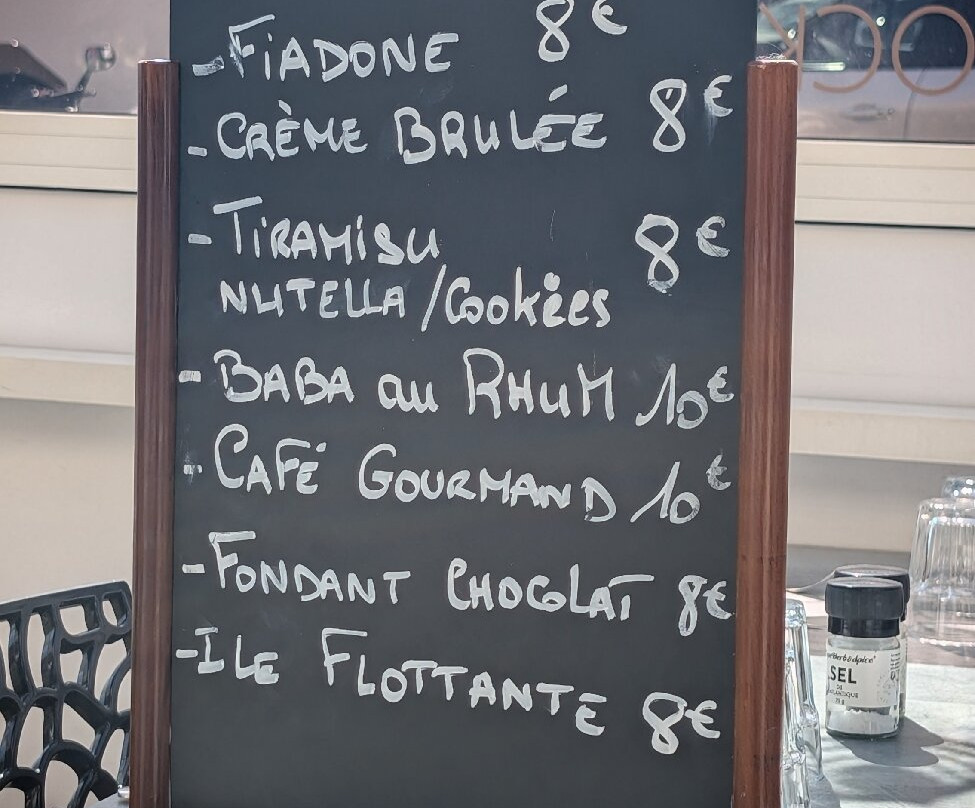 -FiADONE 8€
-CRÈME BRULÉE 8€
-TiRAMiSU 8€
NUTELLA/Cookies
-BABA au RHUM 10€
-CAFÉ GOURMAND 10€
-FONDANT CHOCOLAT 8€
-ILE FLOTTANTE 8€
SEL